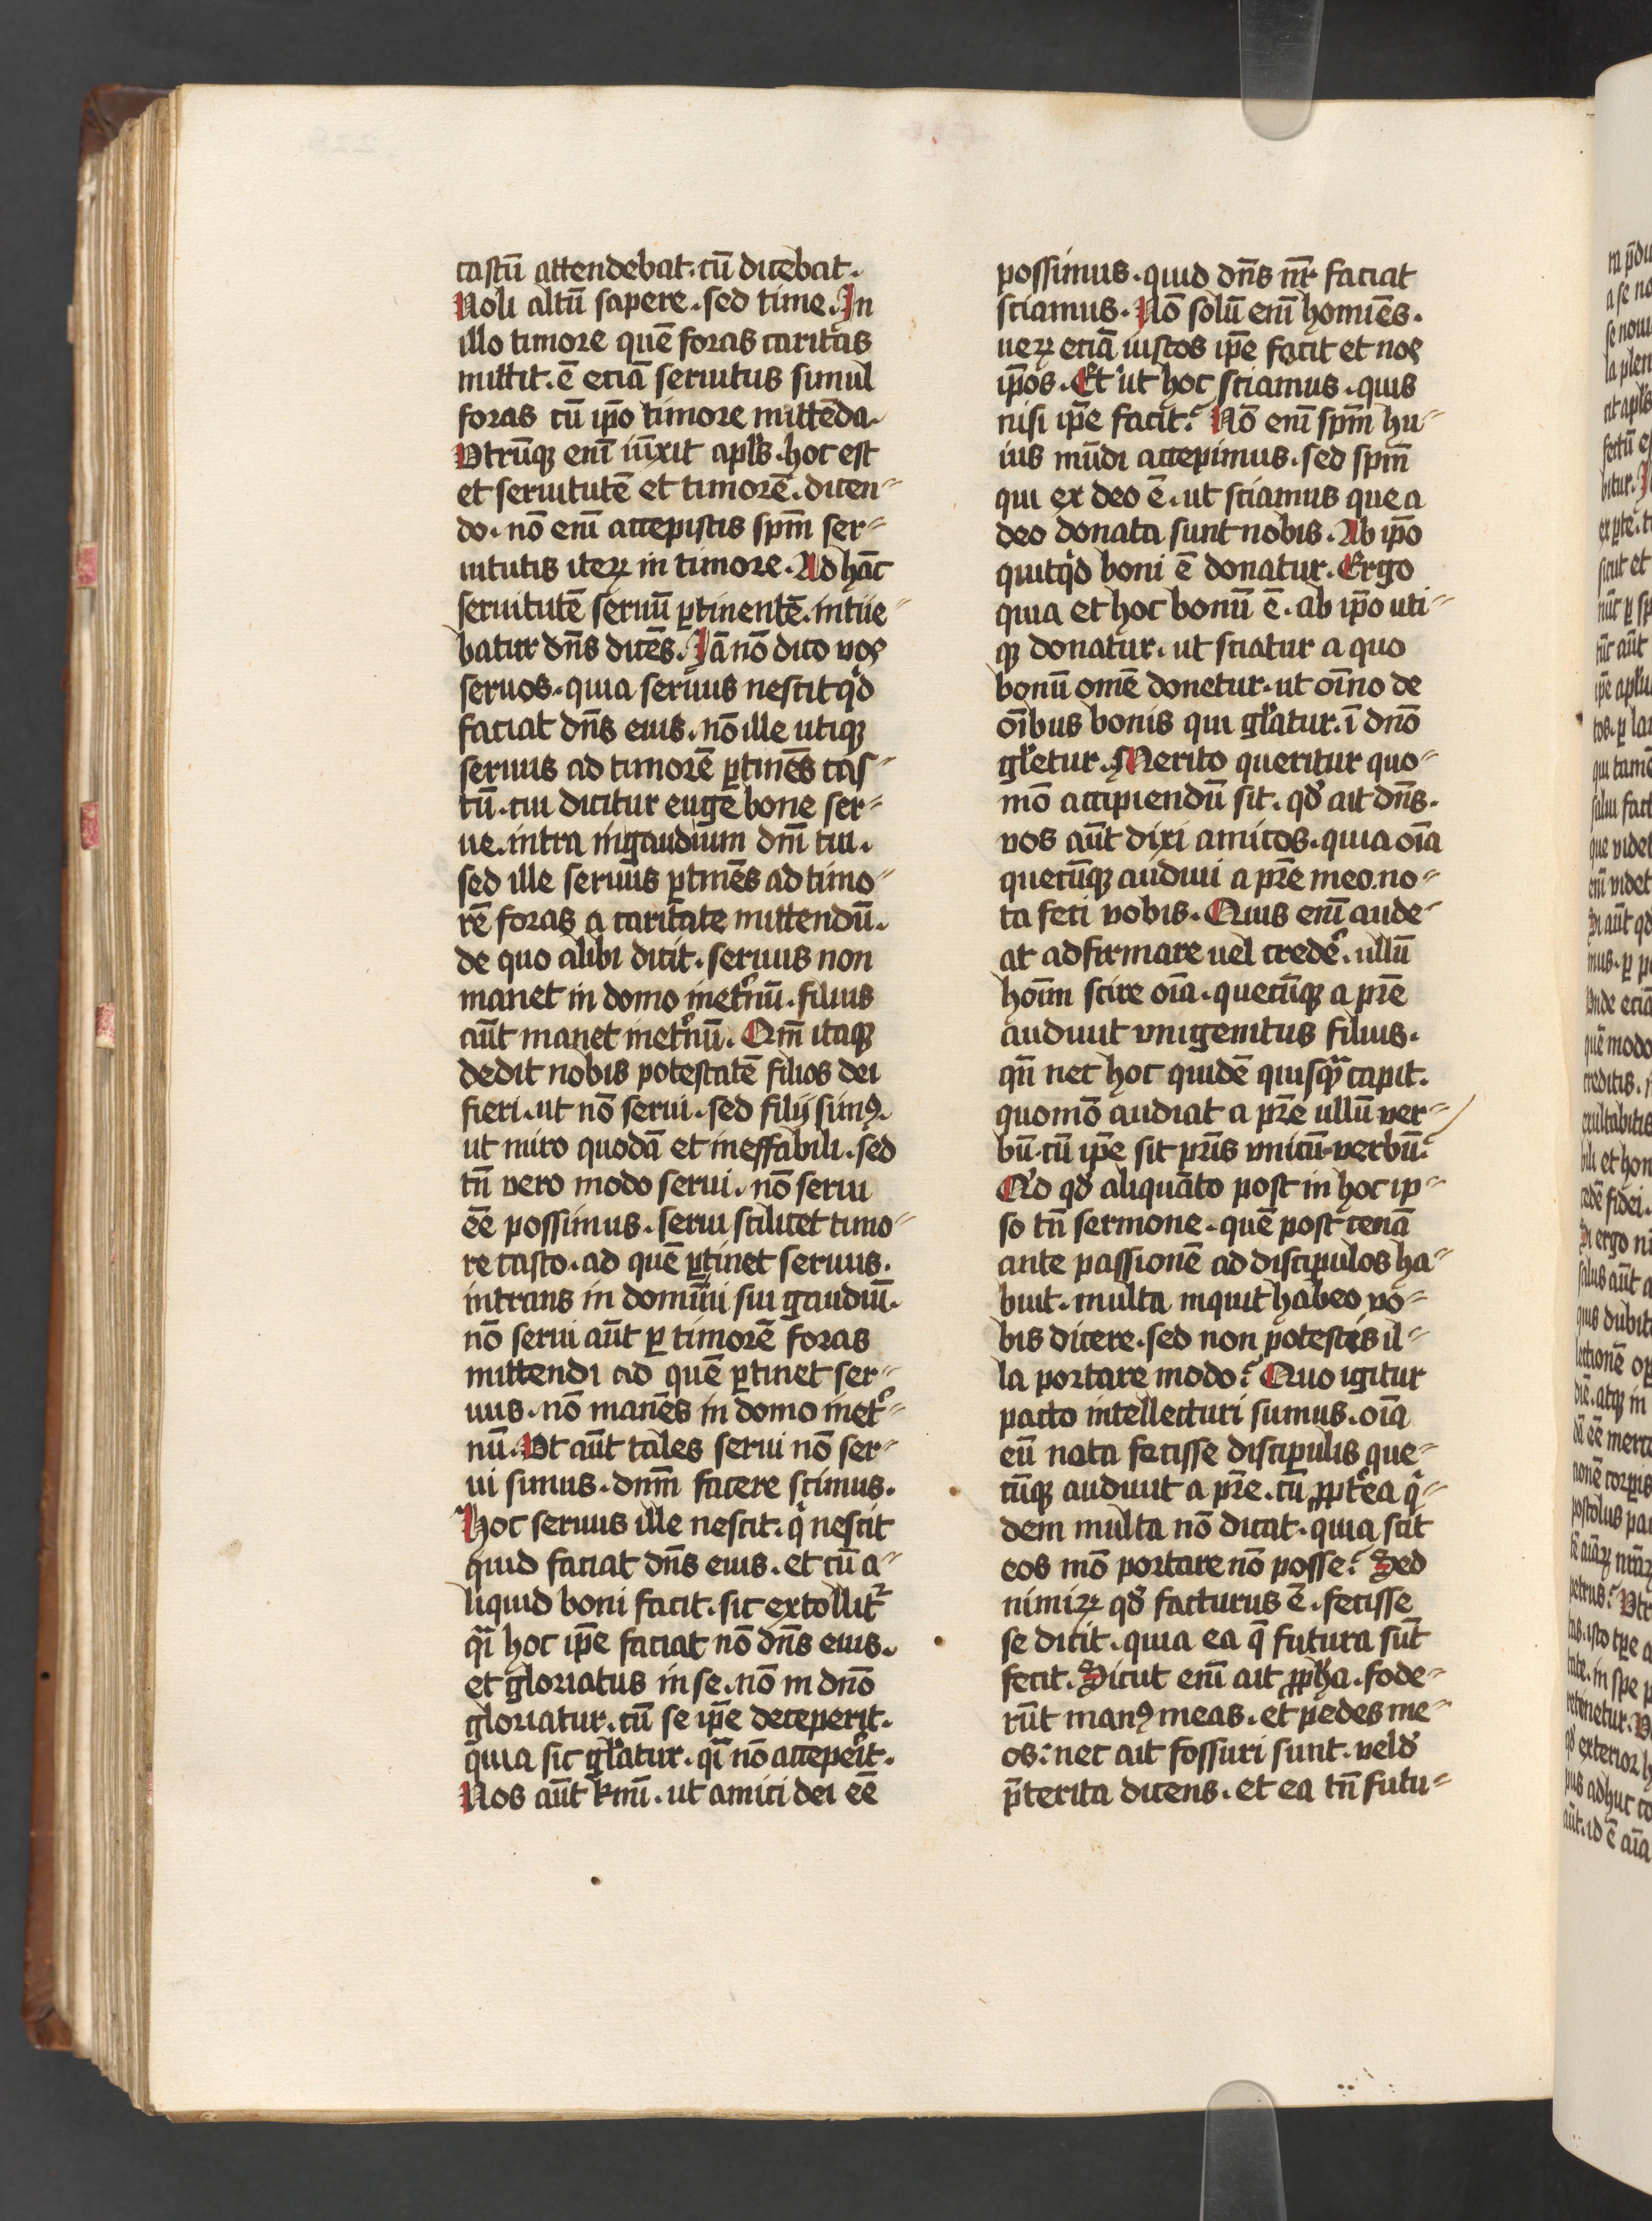 castū attendebat. cū dicebat.
Noli altū sapere. sed time. In
illo timore quē foras caritas
mittit. ē eciā seruitus simul
foras cū ip̄o timore mittēda.
Vtrūq̨ enī iūxit apl̄s. hoc est
et seruitutē et timorē. dicen⸗
do. nō enī accepistis spm̄ ser⸗
uitutis iteꝝ in timore. Ad hāc
seruitutē seruū ꝑtinentē. intue⸗
batur dn̄s dicēs. Iā nō dico vos
seruos. quia seruus nescit qͥd
faciat dn̄s eius. nō ille utiq̨
seruus ad timorē ꝑtinēs cas⸗
tū. cui dicitur euge bone ser⸗
ue. intra in gaudium dn̄i tui.
sed ille seruus ꝑtinēs ad timo⸗
rē foras a caritate mittendū.
de quo alibi dicit. seruus non
manet in domo inet͛nū. filius
aūt manet inet͛nū. Qm̄ itaq̨
dedit nobis potestatē filios dei
fieri. ut nō serui. sed filij simꝰ.
ut miro quodā et ineffabili. sed
tn̄ vero modo serui. nō serui
ēē possimus. serui scilicet timo⸗
re casto. ad quē ꝑtinet seruus.
intrans in domini sui gaudiū.
nō serui aūt ꝑ timorē foras
mittendi ad quē ꝑtinet ser⸗
uus. nō manēs in domo inet͛⸗
nū. Vt aūt tales serui nō ser⸗
ui simus. dnm̄ facere scimus.
Hoc seruus ille nescit. qͥ nescit
quid faciat dn̄s eius. et cū a⸗
liquid boni facit. sic extollit᷑
qᷓi hoc ip̄e faciat nō dn̄s eius.
et gloriatus in se. nō in dn̄o
gloriatur. cū se ip̄e deceperit.
quia sic gl̄atur. qᷓi nō accepe͛it.
Nos aūt kmī. ut amici dei ēē
possimus. quid dn̄s nr̄ faciat
sciamus. Nō solū enī homīes.
ueꝝ eciā iustos ip̄e facit et nos
ip̄os. Et ut hoc sciamus. quis
nisi ip̄e facit? Nō enī spm̄ hu⸗
ius mūdi accepimus. sed spm̄
qui ex deo ē. ut sciamus que a
deo donata sunt nobis. Ab ip̄o
quitqͥd boni ē donatur. Ergo
quia et hoc bonū ē. ab ip̄o uti⸗
q̨ donatur. ut sciatur a quo
bonū omē donetur. ut oīno de
oībus bonis qui gl̄atur. ī dn̄o
gl̄etur. Merito queritur quo⸗
mō accipiendū sit. qđ ait dn̄s.
vos aūt dixi amicos. quia oīa
quecūq̨ audiui a pr̄e meo. no⸗
ta feci vobis. Quis enī aude⸗
at adfirmare uel crede͛. ullū
hoīm scire oīa. quecūq̨ a pr̄e
audiuit vnigenitus filius.
qn̄ nec hoc quidē quisqᷓ capit.
quomō audiat a pr̄e ullū ver⸗
bū. cū ip̄e sit pr̄is vnicū verbū?
Qͥd qđ aliquāto post in hoc ip⸗
so tn̄ sermone. quē post cenā
ante passionē ad discipulos ha⸗
buit. multa inquit habeo vo⸗
bis dicere. sed non potestis il⸗
la portare modo? Quo igitur
pacto intellecturi sumus. oīa
eū nota fecisse discipulis que⸗
cūq̨ audiuit a pr̄e. cū ꝓpt͛ea qͥ⸗
dem multa nō dicat. quia scit
eos mō portare nō posse? Sed
nimiꝝ qđ facturus ē. fecisse
se dicit. quia ea q̄ futura sūt
fecit. Sicut enī ait ꝓph̄a. fode⸗
rūt manꝰ meas. et pedes me⸗
os: nec ait fossuri sunt. velđ
p̄terita dicens. et ea tn̄ futu⸗